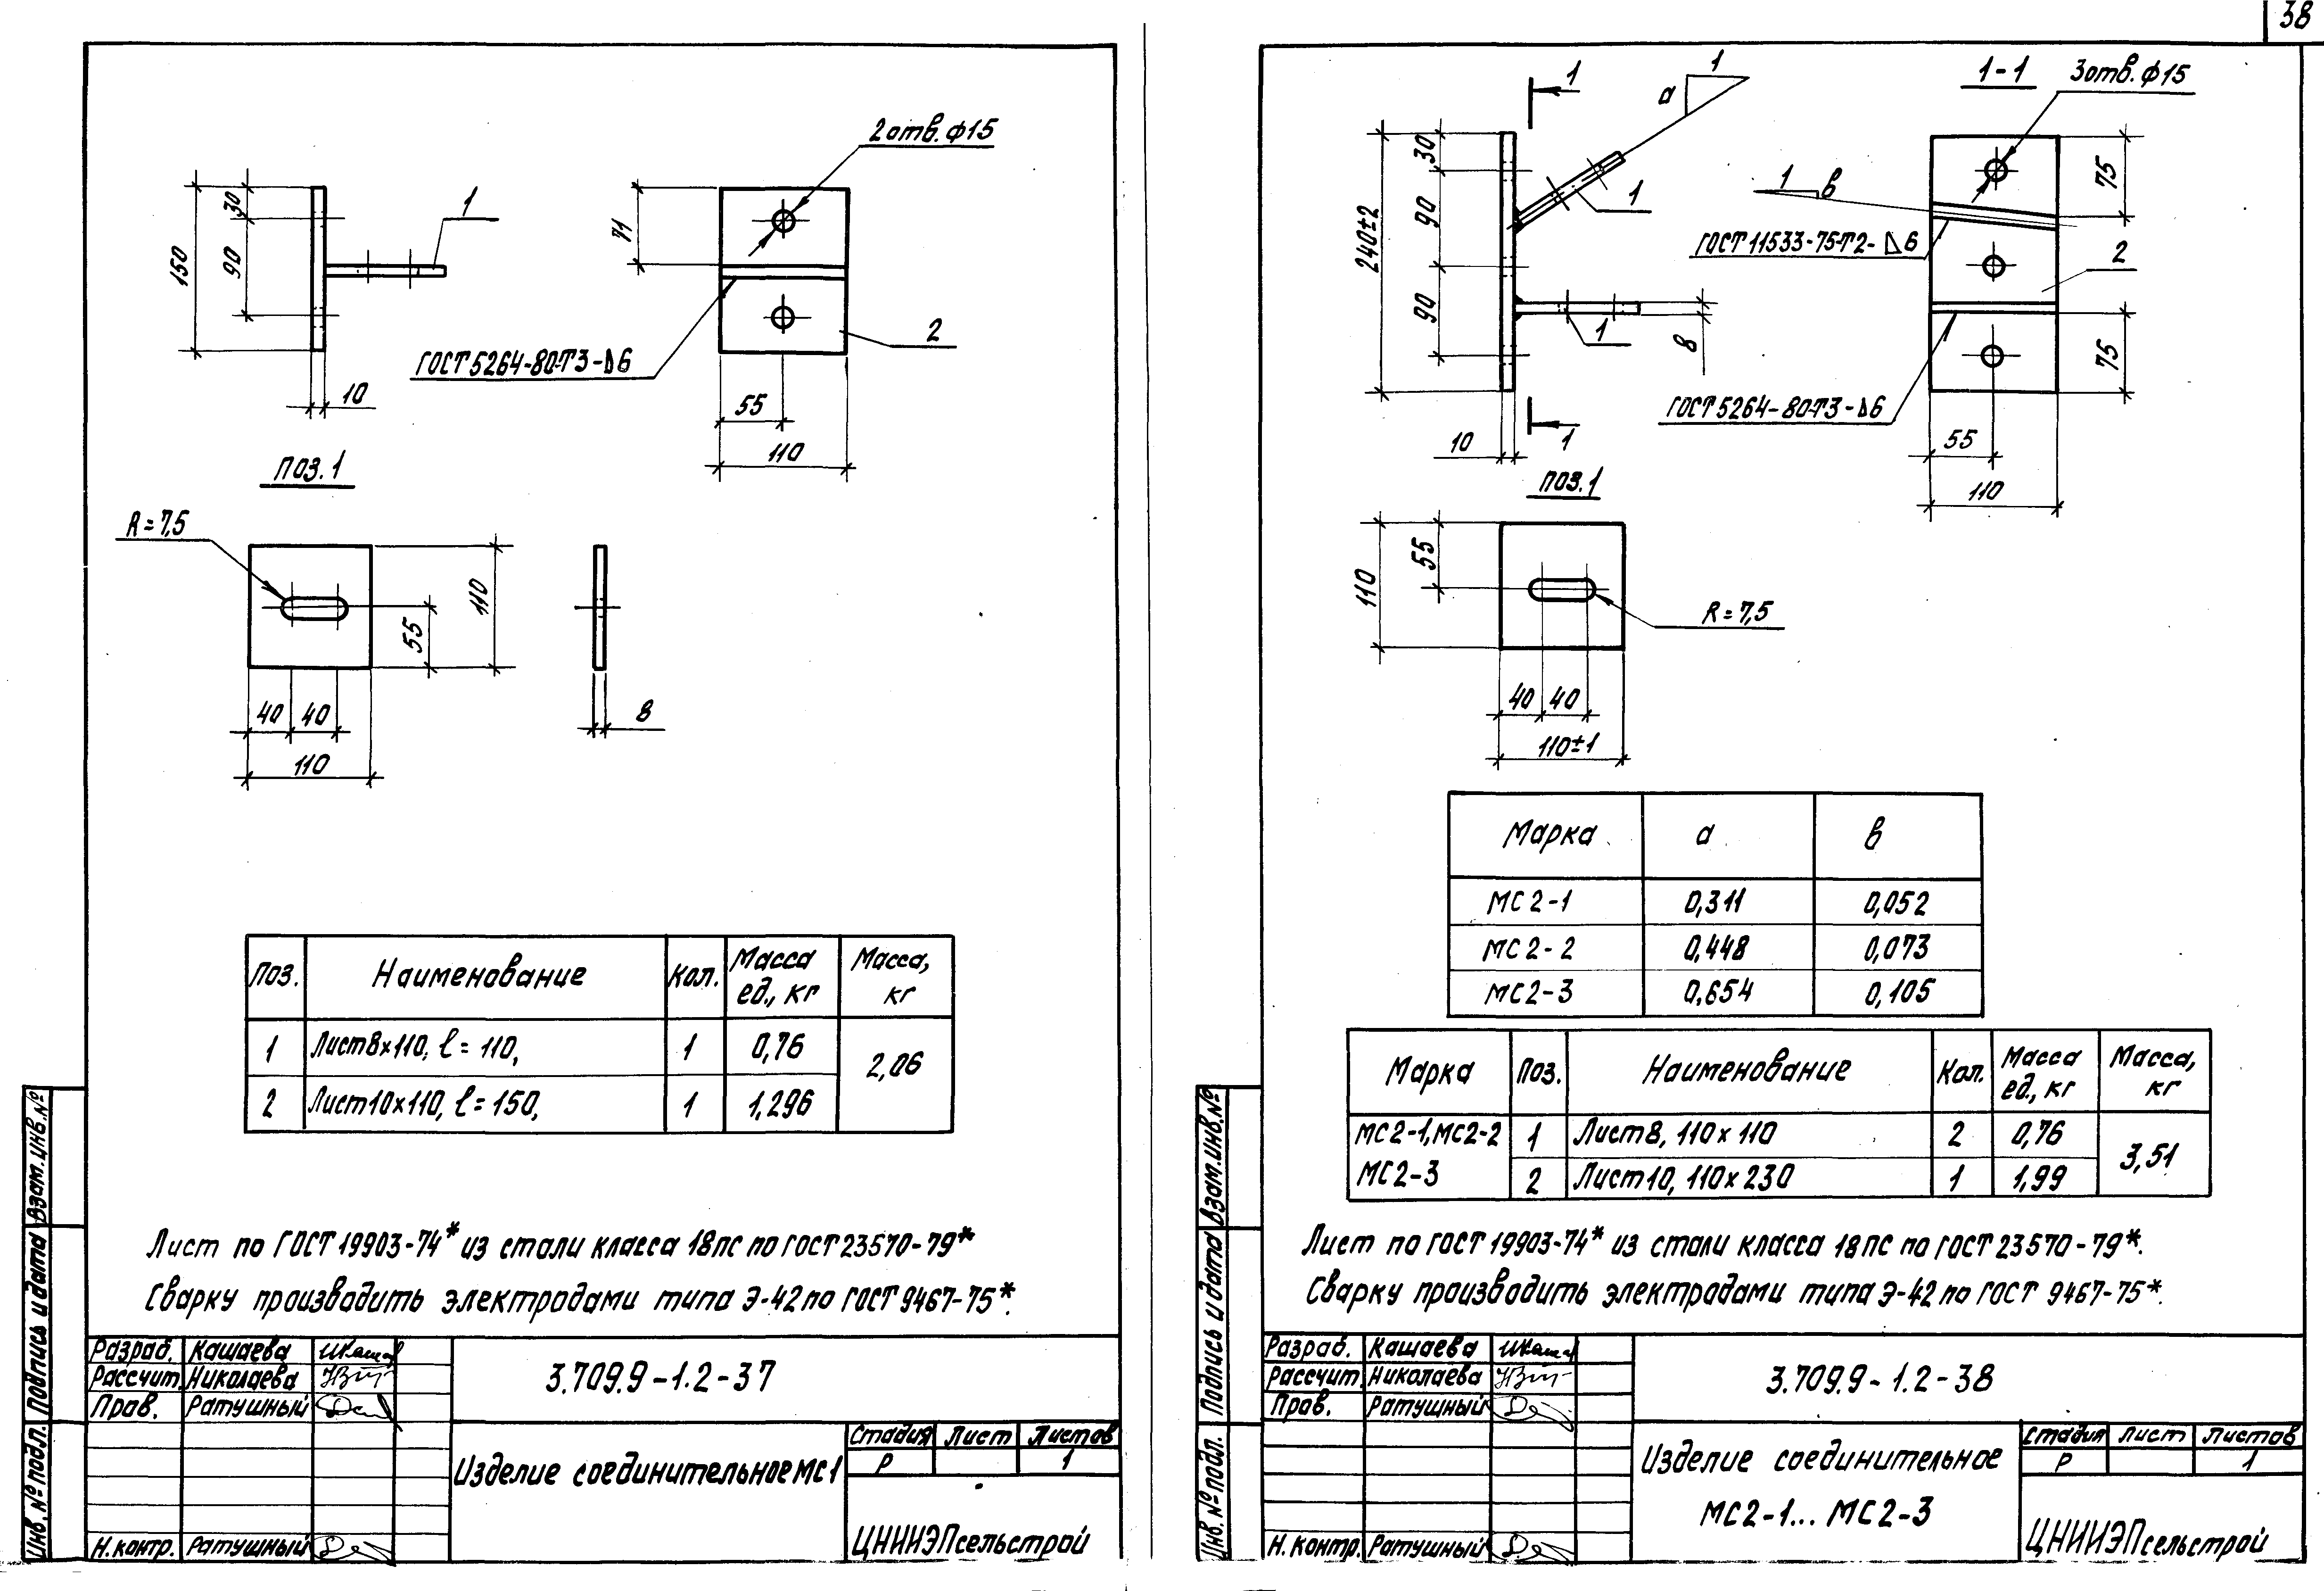 38
2отв. ф15
150
30
90
1
71
ГОСТ 5264-80-Т3-⊿6
2
10
55
110
поз. 1
R=7,5
110
55
40
40
110
8
Поз.
Наименование
Кол.
Масса
ед., кг
Масса,
кг
1
Лист8х110, ℓ=110,
1
0,76
2,06
2
Лист10х110, ℓ=150,
1
1,296
Лист по ГОСТ 19903-74* из стали класса 18пс по ГОСТ 23570-79*
Сварку производить электродами типа Э-42 по ГОСТ 9467-75*.
Разраб.
Кашаева
Рассчит.
Николаева
Пров.
Ратушный
Н. контр.
Ратушный
3.709.9-1.2-37
Изделие соединительное МС1
Стадия
Лист
Листов
Р
1
ЦНИИЭПсельстрой
Инв. № подл.
Подпись и дата
Взам. инв. №
1
1
а
1-1
3отв. ф15
240±2
30
90
90
1
1
8
10
1
1
в
ГОСТ 11533-75-Т2-⊿6
2
75
75
ГОСТ 5264-80-Т3-⊿6
55
110
поз. 1
110
55
R=7,5
40
40
110±1
Марка
а
в
МС2-1
0,311
0,052
МС2-2
0,448
0,073
МС2-3
0,654
0,105
Марка
Поз.
Наименование
Кол.
Масса
ед., кг
Масса,
кг
МС2-1, МС2-2
МС2-3
1
Лист8, 110х110
2
0,76
3,51
2
Лист10, 110х230
1
1,99
Лист по ГОСТ 19903-74* из стали класса 18пс по ГОСТ 23570-79*.
Сварку производить электродами типа Э-42 по ГОСТ 9467-75*.
Разраб.
Кашаева
Рассчит.
Николаева
Пров.
Ратушный
Н. контр.
Ратушный
3.709.9-1.2-38
Изделие соединительное
МС2-1... МС2-3
Стадия
Лист
Листов
Р
1
ЦНИИЭПсельстрой
Инв. № подл.
Подпись и дата
Взам. инв. №